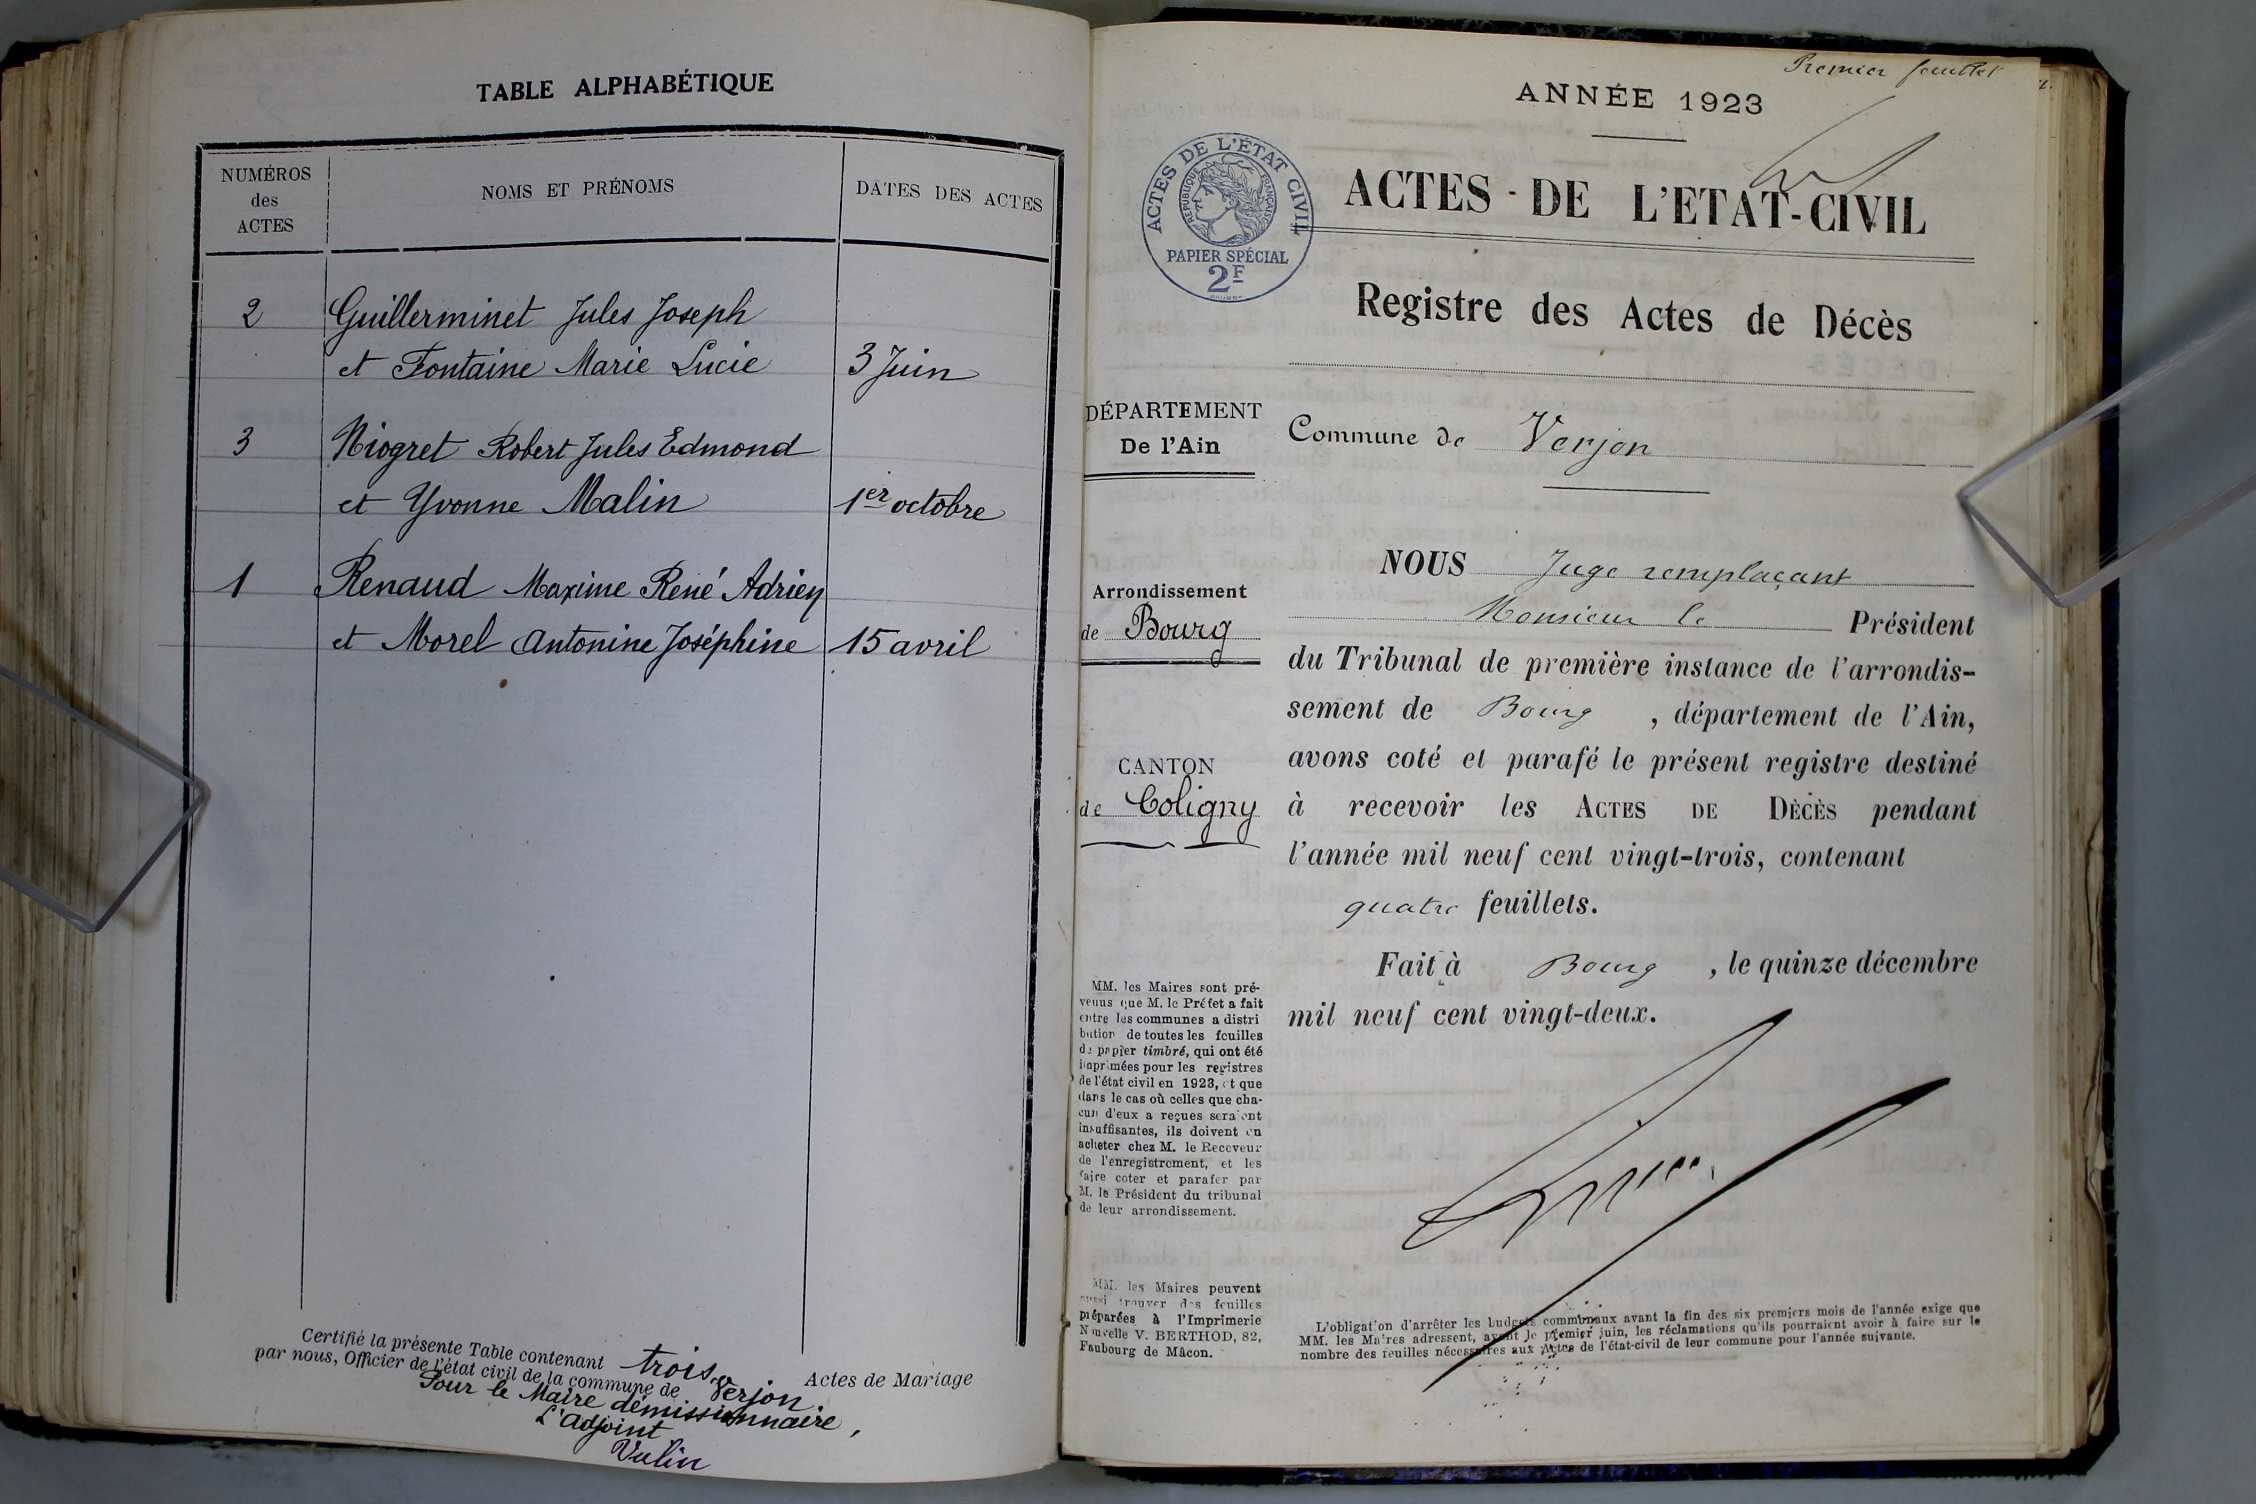 TABLE ALPHABÉTIQUE
NUMÉROS
des
ACTES
NOMS ET PRÉNOMS
DATES DES ACTES
2 Guillerminet Jules Joseph
et Fontaine Marie Lucie 3 Juin
3 Niogret Robert Jules Edmond
et Yvonne Malin 1er octobre
1 Renaud Maxime René Adrien
et Morel Antonine Joséphine 15 avril
Certifié la présente Table contenant trois Actes de Mariage
par nous, Officier de l'état civil de la commune de Verjon
Pour le Maire démissionnaire,
L'adjoint
Premier feuillet
ANNÉE 1923
ACTES DE L'ÉTAT CIVIL
RÉPUBLIQUE FRANÇAISE
PAPIER SPÉCIAL
2F
ACTES - DE L'ETAT-CIVIL
Registre des Actes de Décès
DÉPARTEMENT
De l'Ain
Commune de Verjon
Arrondissement
de Bourg
CANTON
de Coligny
NOUS Juge remplaçant
Monsieur le Président
du Tribunal de première instance de l'arrondis-
sement de Bourg, département de l'Ain,
avons coté et parafé le présent registre destiné
à recevoir les ACTES DE DÉCÈS pendant
l'année mil neuf cent vingt-trois, contenant
quatre feuillets.
Fait à Bourg, le quinze décembre
mil neuf cent vingt-deux.
MM. les Maires sont pré-
venus que M. le Préfet a fait
entre les communes a distri
bution de toutes les feuilles
de papier timbré, qui ont été
imprimées pour les registres
de l'état civil en 1923, et que
dans le cas où celles que cha-
cun d'eux a reçues seraient
insuffisantes, ils doivent en
acheter chez M. le Receveur
de l'enregistrement, et les
faire coter et parafer par
M. le Président du tribunal
de leur arrondissement.
MM. les Maires peuvent
aussi trouver des feuilles
préparées à l'Imprimerie
Nouvelle V. BERTHOD, 82,
Faubourg de Mâcon.
L'obligation d'arrêter les budgets communaux avant la fin des six premiers mois de l'année exige que
MM. les Maires adressent, avant le premier juin, les réclamations qu'ils pourraient avoir à faire sur le
nombre des feuilles nécessaires aux Actes de l'état-civil de leur commune pour l'année suivante.